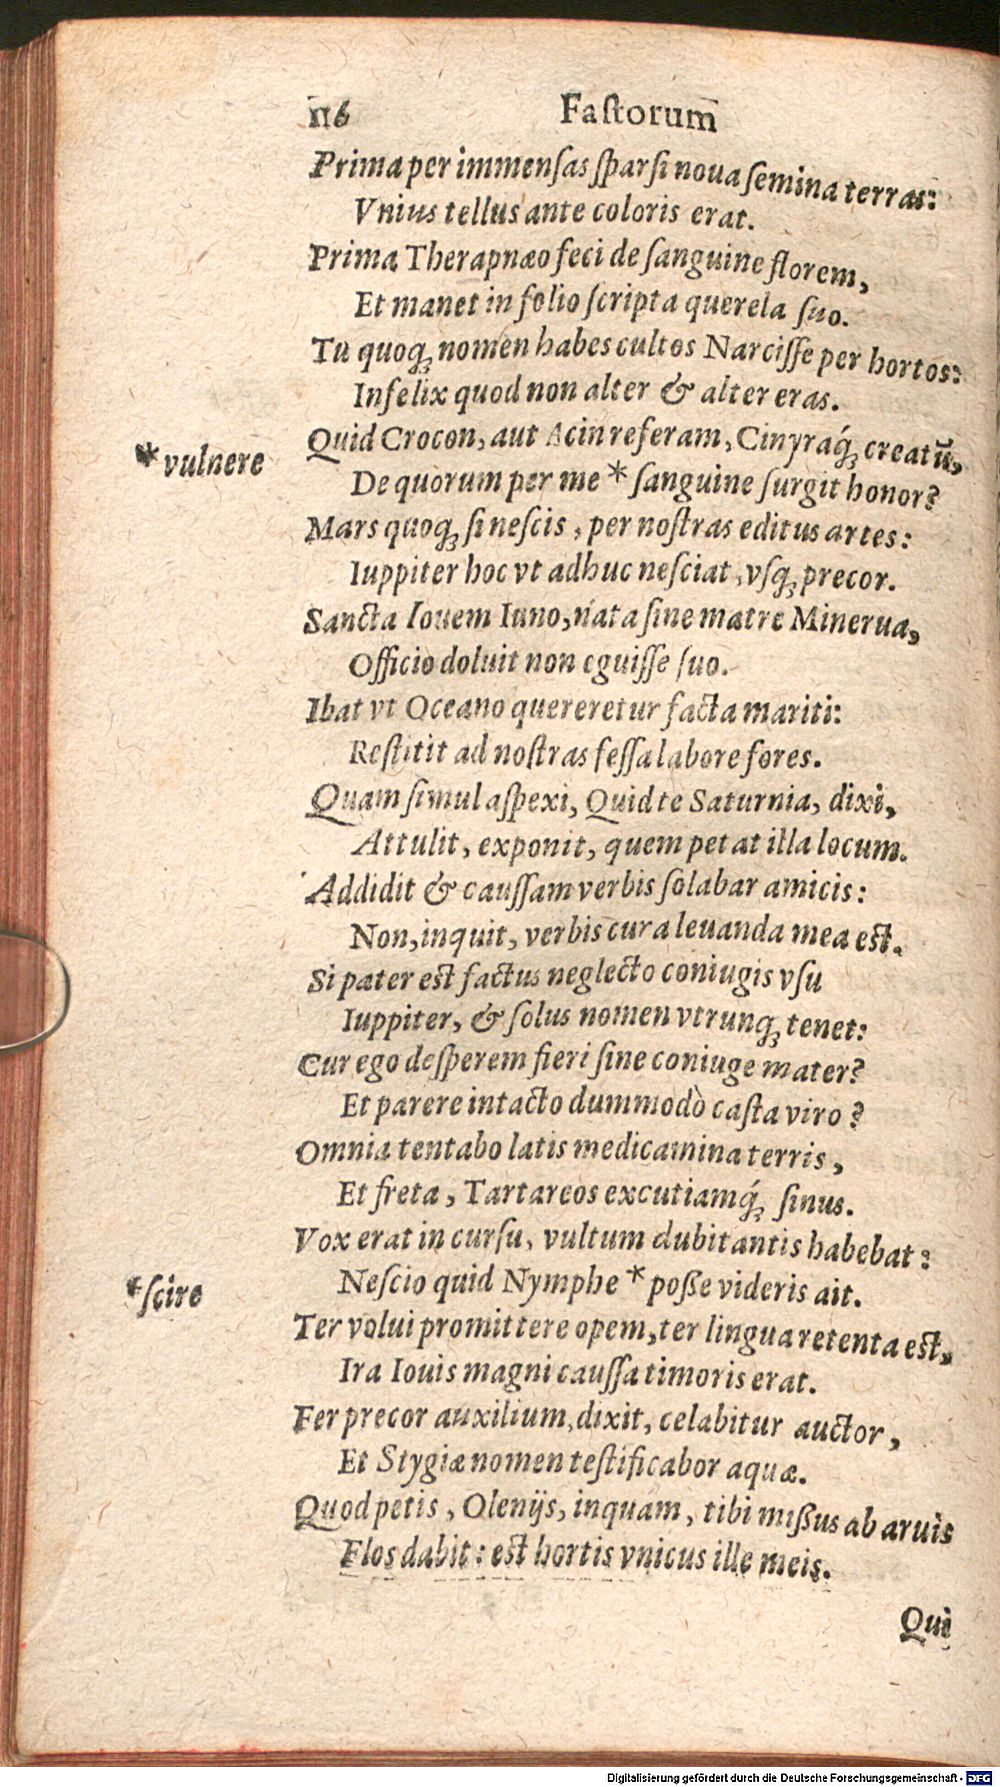 116 Faſtorum
Prima per immenſas ſparſi noua ſemina terras:
Vnius tellus ante coloris erat.
Prima Therapnæo feci de ſanguine florem,
Et manet in folio ſcripta querela ſuo.
Tu quoq; nomen habes cultos Narciſſe per hortos:
Infelix quod non alter & alter eras.
Quid Crocon, aut Acin referam, Cinyraq́; creatū,
* vulnere
De quorum per me * ſanguine ſurgit honor?
Mars quoq; ſi neſcis, per noſtras editus artes:
Iuppiter hoc vt adhuc neſciat, vſq; precor.
Sancta Iouem Iuno, nata ſine matre Minerua,
Officio doluit non eguiſſe ſuo.
Ibat vt Oceano quereretur facta mariti:
Reſtitit ad noſtras feſſa labore fores.
Quam ſimul aſpexi, Quid te Saturnia, dixi,
Attulit, exponit, quem petat illa locum.
Addidit & cauſſam verbis ſolabar amicis:
Non, inquit, verbis cura leuanda mea eſt.
Si pater eſt factus neglecto coniugis vſu
Iuppiter, & ſolus nomen vtrunq; tenet:
Cur ego deſperem fieri ſine coniuge mater?
Et parere intacto dummodò caſta viro?
Omnia tentabo latis medicamina terris,
Et freta, Tartareos excutiamq́; ſinus.
Vox erat in curſu, vultum dubitantis habebat:
Neſcio quid Nymphe * poße videris ait.
* ſcire
Ter volui promittere opem, ter lingua retenta eſt,
Ira Iouis magni cauſſa timoris erat.
Fer precor auxilium, dixit, celabitur auctor,
Et Stygiæ nomen teſtificabor aquæ.
Quod petis, Olenijs, inquam, tibi mißus ab aruis
Flos dabit: eſt hortis vnicus ille meis.
Qui
Digitalisierung gefördert durch die Deutsche Forschungsgemeinschaft - DFG